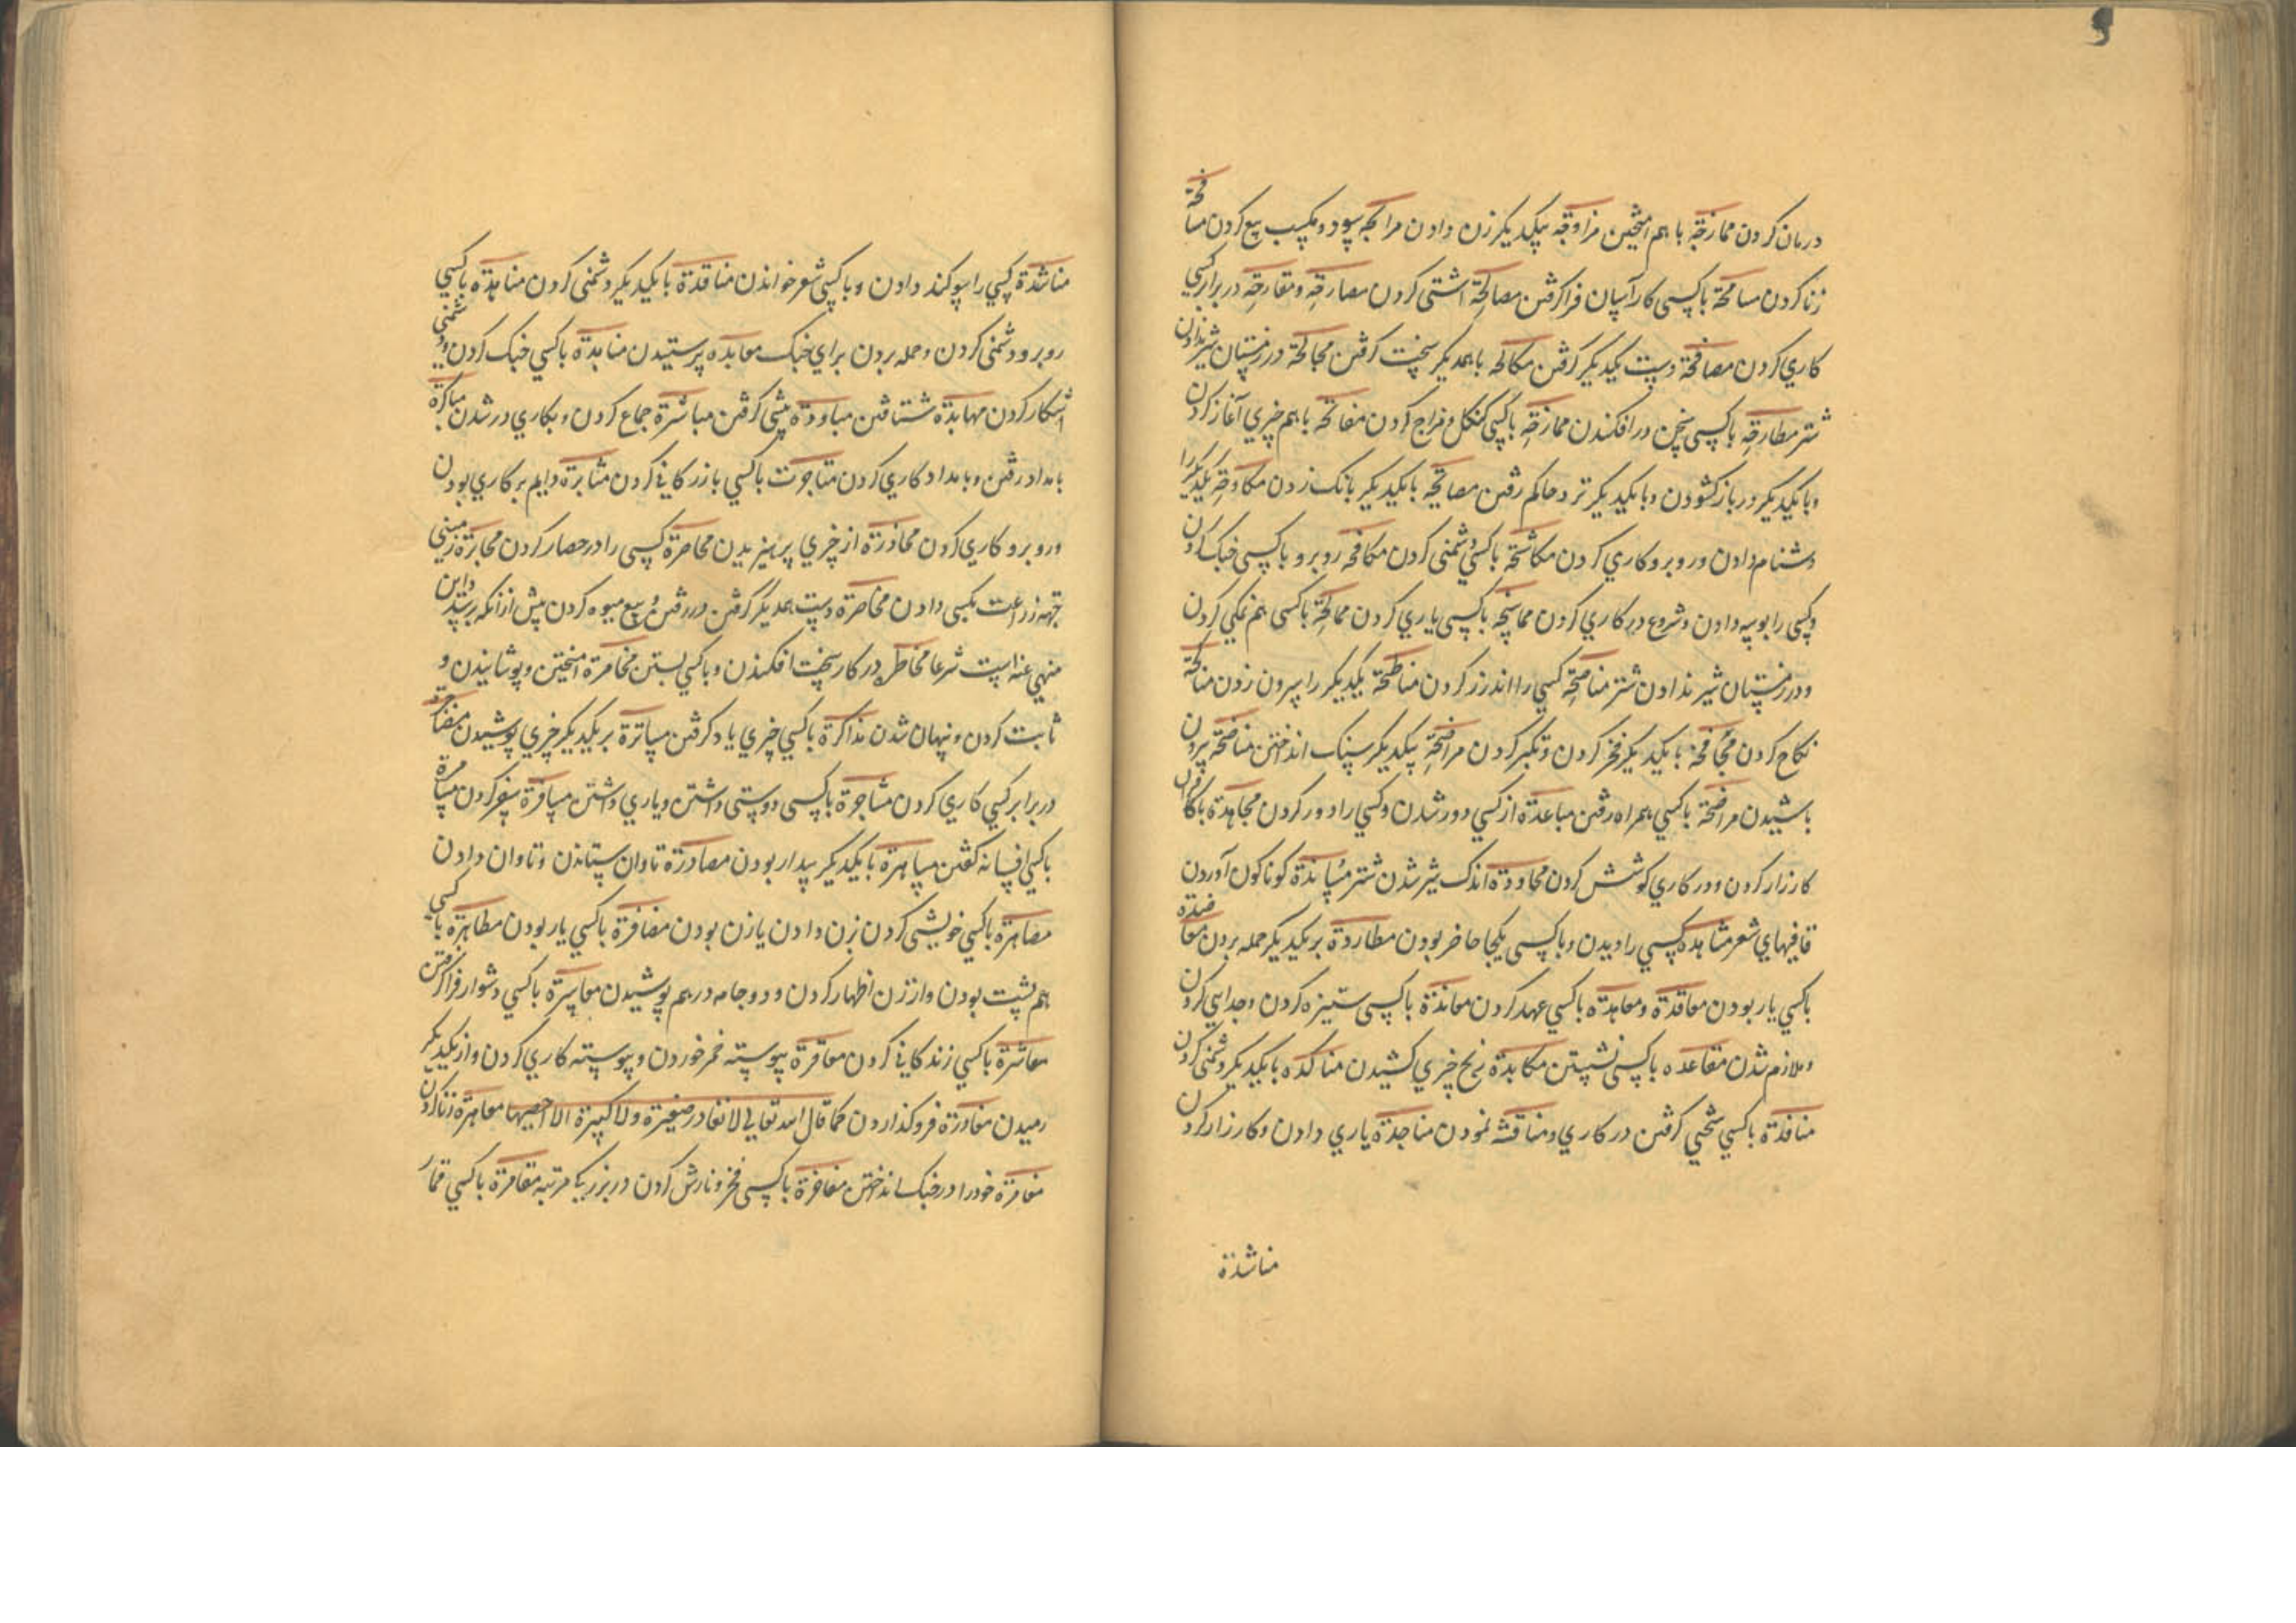 درمان کردن ممازجة با هم امیختن مزاوجة بیکدیکر زن دادن مرابحه بسود و مکسب بیع کردن مسافحة
زنا کردن مسامحة با کسی کار آسان فرا کرفتن مصالحة اشتی کردن مصارحة و مقارحة در برابر کسی
کاری کردن مصافحة دست یکدیکر کرفتن مکالحه با همدیکر سخت کرفتن مجالحة در زمستان شیر ندادن
شتر مطارحة با کسی سخن در افکندن ممازحة با کسی کنکل و مزاج کردن مفاتحة با هم چیزی آغاز کردن
و با یکدیکر در باز کشودن و با یکدیکر نزد حاکم رفتن مصایحة با یکدیکر بانک زدن مکاوحة یکدیکر را
دشنام دادن و روبرو کاری کردن مکاشحة با کسی دشمنی کردن مکافحه روبرو با کسی جنک کردن
و کسی را بوسه دادن و شروع در کاری کردن ممانحة با کسی یاری کردن ممالحة با کسی هم نمکی کردن
و در زمستان شیر ندادن شتر مناصحة کسی را اندرز کردن مناطحة یکدیکر را سرون زدن مناکحة
نکاح کردن مجافخة با یکدیکر فخر کردن و تکبر کردن مراضخة بیکدیکر سنک انداختن مناضخة بر
باشیدن مراضخة با کسی همراه رفتن مباعدة از کسی دور شدن و کسی را دور کردن مجاهدة با کافران
کارزار کردن و در کاری کوشش کردن محاردة اندک شیر شدن شتر مساندة کوناکون آوردن
قافیهای شعر مشاهده کسی را دیدن و با کسی یکجا حاضر بودن مطاردة بر یکدیکر حمله بردن معاضدة
با کسی یار بودن معاقدة و معاهدة با کسی عهد کردن معاندة با کسی ستیزه کردن و جدایی کردن
و ملازم شدن مقاعده با کسی نشستن مکابدة رنج چیزی کشیدن مناکده با یکدیکر دشمنی کردن
منافدة با کسی سختی کرفتن در کاری و مناقشه نمودن مناجدة یاری دادن و کارزار کردن
مناشدة
مناشدة کسی را سوکند دادن و با کسی شعر خواندن مناقدة با یکدیکر دشمنی کردن مناهدة با کسی
روبرو دشمنی کردن و حمله بردن برای جنک معابده پرستیدن منابذة با کسی جنک کردن و دشمنی
آشکار کردن مهابذة شتافتن مبادرة پیشی کرفتن مباشرة جماع کردن و بکاری در شدن مباکرة
بامداد رفتن و بامداد کاری کردن متاجرت با کسی بازرکانی کردن مثابرة دایم بر کاری بودن
و روبرو کاری کردن محاذرة از چیزی پرهیزیدن محاصرة کسی را در حصار کردن مخابرة زمینی
جهة زراعت بکسی دادن مخاصرة دست همدیکر کرفتن در رفتن و بیع میوه کردن پیش از آنکه برسد و این
منهی عنه است شرعا مخاطره در کار سخت افکندن و با کسی بستن مخامرة امیختن و پوشانیدن و
ثابت کردن و پنهان شدن مذاکرة با کسی چیزی یاد کرفتن مساترة بر یکدیکر چیزی پوشیدن
در برابر کسی کاری کردن مشاجرة با کسی دوستی داشتن و یاری داشتن مسافرة سفر کردن مسامرة
با کسی افسانه کفتن مساهرة با یکدیکر بیدار بودن مصادرة تاوان ستاندن و تاوان دادن
مصاهرة با کسی خویشی کردن بزن دادن یا زن بودن مضافرة با کسی یار بودن مظاهرة با کسی
هم پشت بودن و از زن اظهار کردن و دو جامه در هم پوشیدن معاسرة با کسی دشوار فرا کرفتن
معاشرة با کسی زندکانی کردن معاقرة پیوسته خمر خوردن و پیوسته کاری کردن و از یکدیکر
رمیدن مغادرة فرو کذاردن کما قال الله تعالی لا یغادر صغیرة ولا کبیرة الا احصیها معاهرة زنا کردن
مغامرة خود را در جنک انداختن مفاخرة با کسی فخر و نازش کردن در بزرکی مرتبه مقامرة با کسی قمار